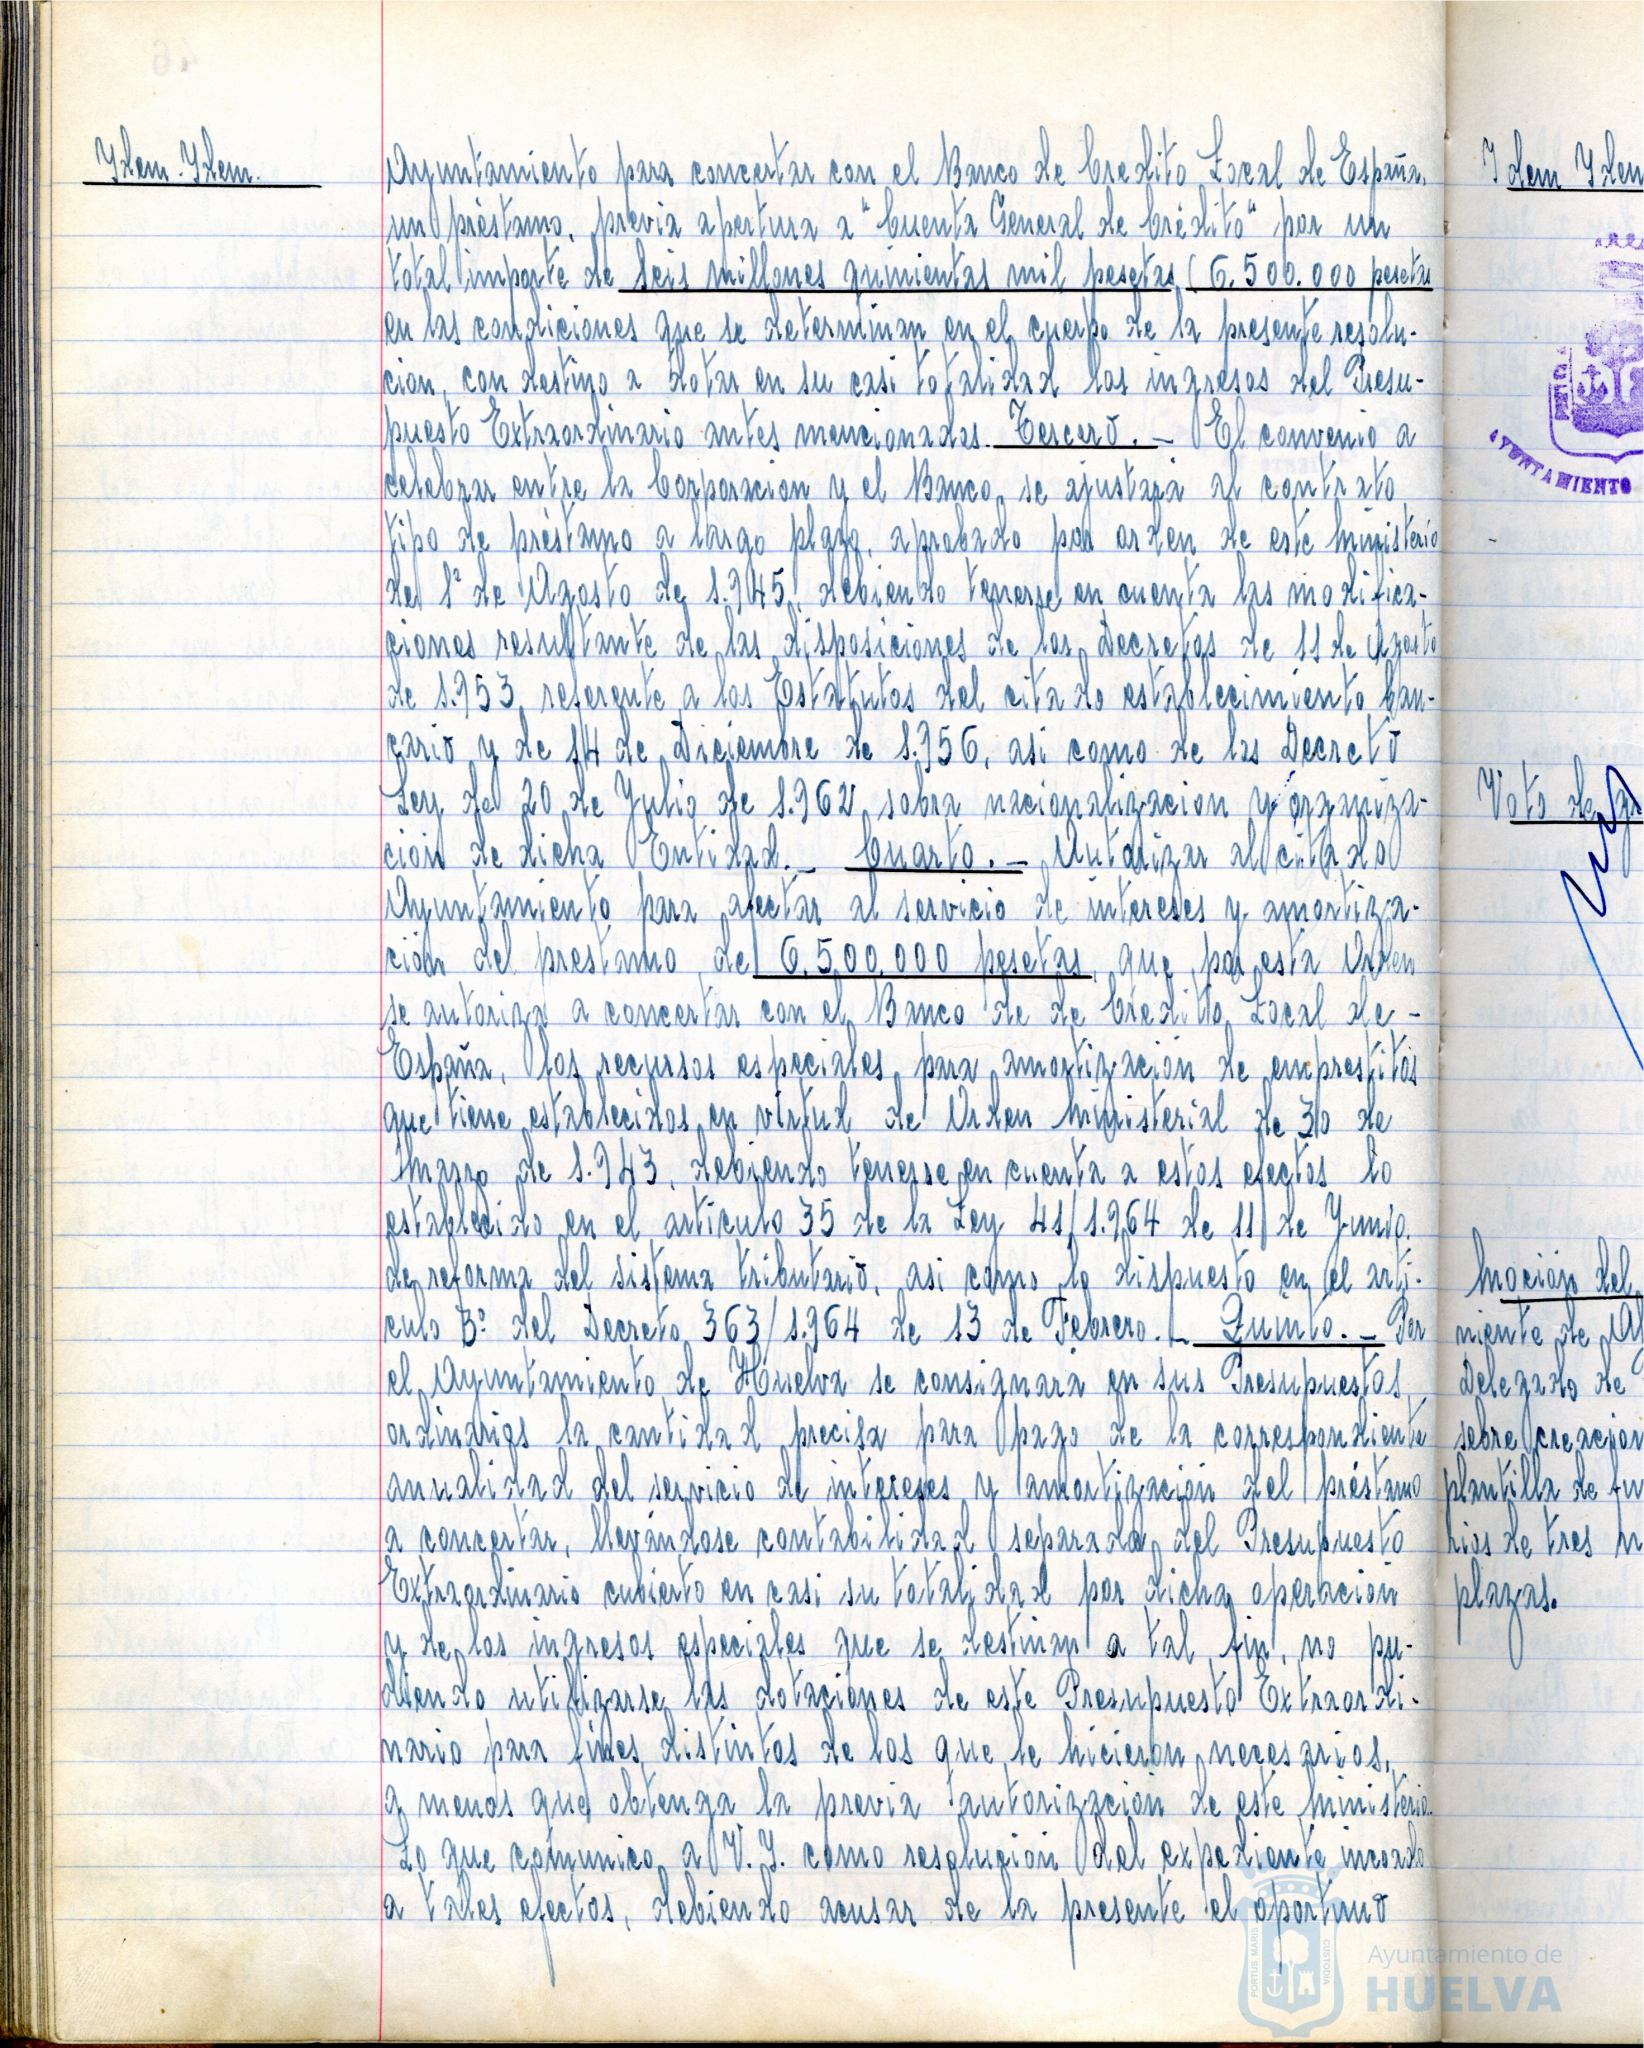 Ydem. Ydem.
Ayuntamiento para concertar con el Banco de Credito Local de España,
un préstamo, previa apertura a "Cuenta General de Crédito" por un
total importe de seis millones quinientas mil pesetas (6.500.000 pesetas
en las condiciones que se determinan en el cuerpo de la presente resolu-
cion, con destino a dotar en su casi totalidad los ingresos del Presu-
puesto Extraordinario antes mencionados. Tercero. - El convenio a
celebrar entre la Corporacion y el Banco, se ajustará al contrato
tipo de préstamo a largo plazo, aprobado por orden de este Ministerio
del 1º de Agosto de 1.945, debiendo tenerse en cuenta las modifica-
ciones resultante de las disposiciones de los Decretos de 11 de Agosto
de 1.953 referente a los Estatutos del citado establecimiento ban-
cario y de 14 de Diciembre de 1.956, asi como de las Decreto
Ley del 20 de Julio de 1.962 sobra nacionalizacion y organiza-
cion de dicha Entidad. - Cuarto. - Autorizar al citado
Ayuntamiento para afectar al servicio de intereses y amortiza-
ción del prestamo de 6.500.000 pesetas, que por esta Orden
se autoriza a concertar con el Banco de de Credito Local de -
España, los recursos especiales para amortización de emprestitos
que tiene establecidos en virtud de Orden Ministerial de 30 de
Marzo de 1.943, debiendo tenerse en cuenta a estos efectos lo
establecido en el artículo 35 de la Ley 41/1.964 de 11 de Junio,
de reforma del sistema tributario, asi como lo dispuesto en el arti-
culo 3º del Decreto 363/1.964 de 13 de Febrero. - Quinto. - Por
el Ayuntamiento de Huelva se consignará en sus Presupuestos
ordinarios la cantidad precisa para pago de la correspondiente
anualidad del servicio de intereses y amortización del préstamo
a concertar, llevándose contabilidad separada del Presupuesto
Extraordinario cubierto en casi su totalidad por dicha operación
y de los ingresos especiales que se destinan a tal fin, no pu-
diendo utilizarse las dotaciones de este Presupuesto Extraordi-
nario para fines distintos de los que le hicieron necesarios,
a menos que obtenga la previa autorización de este Ministerio.
Lo que comunico a V. Y. como resolucion del expediente incoado
a tales efectos, debiendo acusar de la presente el oportuno
Ydem Ydem
AYUNTAMIENTO
Voto de
Moción del
niente de
Delegado de
sobre creación
plantilla de fu
rios de tres
plazas.
PORTUS MARIS
CUSTODIA
Ayuntamiento de
HUELVA